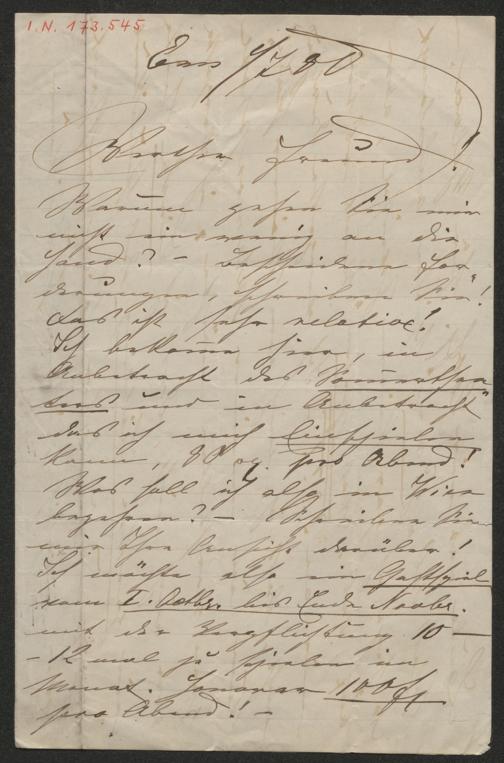 I.N. 173.545
Ems 4/7 80
Werther Freund!
Warum gehen Sie mir
nicht ein wenig an die
Hand? – Bescheidene For-
derungen, schreiben Sie!
das ist sehr relativ!
Ich bekomme hier, in
Anbetracht des Sommerthea-
ters und in Anbetracht
daß ich mich einspielen
kann, 80 pro Abend!
Was soll ich also in Wien
begehren? – Schreiben Sie
mir Ihre Ansicht darüber!
Ich möchte also ein Gastspiel
vom I. Octbr. bis Ende Novbr.
mit der Verpflichtung 10 –
– 12 mal zu spielen im
Monat. Honorar 100 fl
pro Abend! –